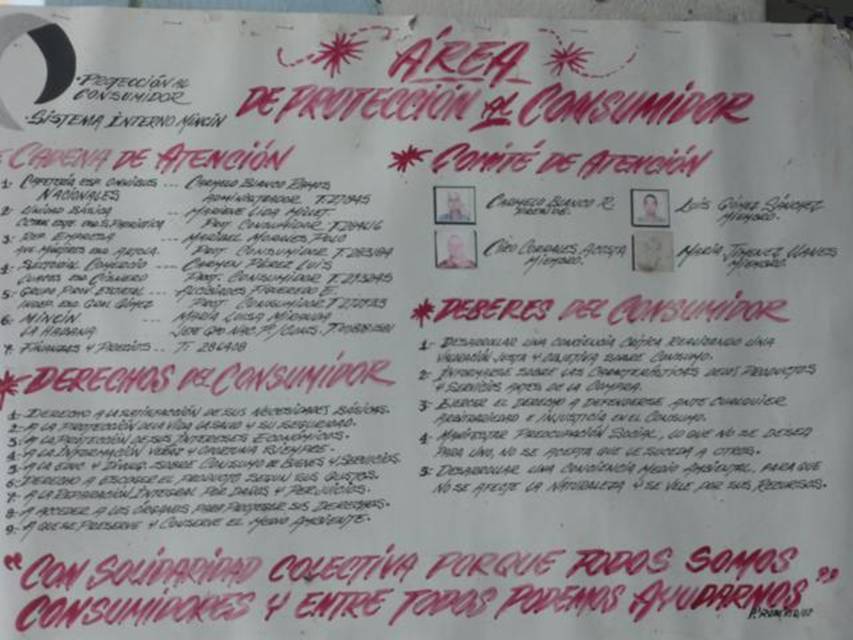 ÁREA
DE PROTECCIÓN AL CONSUMIDOR
• PROTECCIÓN AL
CONSUMIDOR
• SISTEMA INTERNO MINCIN
CADENA DE ATENCIÓN
1- CAFETERÍA ESP. OMNIBUS --- CARMELO BLANCO RAMOS
NACIONALES ADMINISTRADOR
2- UNIDAD BÁSICA ---
PROT. CONSUMIDOR
3- EMPRESA --- MARIBEL MORALES POLO
PROT. CONSUMIDOR
4- SECTORIAL COMERCIO --- CARMEN PÉREZ LUIS
PROT. CONSUMIDOR
5- GRUPO PROV. ESTATAL ---
PROT. CONSUMIDOR
6- MINCIN --- MARÍA LUISA MIRANDA
LA HABANA
7- FINANZAS Y PRECIOS -- T: 286408
DERECHOS DEL CONSUMIDOR
1- DERECHO A LA SATISFACCIÓN DE SUS NECESIDADES BÁSICAS.
2- A LA PROTECCIÓN DE LA VIDA LA SALUD Y SU SEGURIDAD.
3- A LA PROTECCIÓN DE SUS INTERESES ECONÓMICOS.
4- A LA INFORMACIÓN VERAZ Y OPORTUNA SIEMPRE.
5- A LA EDUC Y DIVULG. SOBRE CONSUMO DE BIENES Y SERVICIOS.
6- DERECHO A ESCOGER EL PRODUCTO SEGÚN SUS GUSTOS.
7- A LA REPARACIÓN INTEGRAL POR DAÑOS Y PERJUICIOS.
8- A ACCEDER A LOS ÓRGANOS PARA PROTEGER SUS DERECHOS.
9- A QUE SE PRESERVE Y CONSERVE EL MEDIO AMBIENTE.
COMITÉ DE ATENCIÓN
CARMELO BLANCO R.
LUIS GÓMEZ SÁNCHEZ
MIEMBRO.
CIRO CORRALES ACOSTA
MIEMBRO.
MARÍA JIMENEZ LLANES
MIEMBRO.
DEBERES DEL CONSUMIDOR
1- DESARROLLAR UNA CONCIENCIA CRÍTICA REALIZANDO UNA
VALORACIÓN JUSTA Y OBJETIVA SOBRE CONSUMO.
2- INFORMARSE SOBRE LAS CARACTERÍSTICAS DE LOS PRODUCTOS
Y SERVICIOS ANTES DE LA COMPRA.
3- EJERCER EL DERECHO A DEFENDERSE ANTE CUALQUIER
ARBITRARIEDAD E INJUSTICIA EN EL CONSUMO.
4- MANIFESTAR PREOCUPACIÓN SOCIAL, LO QUE NO SE DESEA
PARA UNO, NO SE ACEPTA QUE LE SUCEDA A OTROS.
5- DESARROLLAR UNA CONCIENCIA MEDIO AMBIENTAL, PARA QUE
NO SE AFECTE LA NATURALEZA Y SE VELE POR SUS RECURSOS.
"CON SOLIDARIDAD COLECTIVA PORQUE TODOS SOMOS
CONSUMIDORES Y ENTRE TODOS PODEMOS AYUDARNOS"